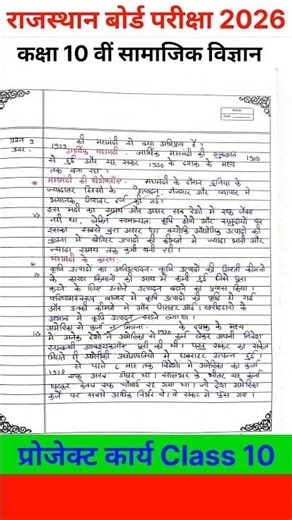 राजस्थान बोर्ड परीक्षा 2026
कक्षा 10 वीं सामाजिक विज्ञान
प्रश्न
1929 की महामंदी से क्या अभिप्राय है?
उत्तर
आर्थिक महामंदी की शुरुआत 1929
से हुई और यह संकट 1930 के दशक के मध्य
तक बना रहा।
महामंदी की विशेषताएँ महामंदी के दौरान दुनिया के
ज्यादातर हिस्सों के उत्पादन, रोजगार और व्यापार में
भयानक गिरावट दर्ज की गई।
इस मंदी का समय और असर सब देशों में एक जैसा
नहीं था,
इसका सबसे बुरा असर पड़ा क्योंकि औद्योगिक उत्पादों की
तुलना में खेतिहर उत्पादों की कीमतों में ज्यादा भारी और
ज्यादा समय तक कमी बनी रही।
महामंदी के कारण:-
कृषि उत्पादों का अतिउत्पादन कृषि उत्पादों की गिरती कीमतों
के कारण किसानों की आय
करने के लिए उन्होंने उत्पादन बढ़ाने का प्रयास किया।
परिणामस्वरूप बाजार में कृषि उत्पादों की
और उनकी कीमतें और गिर खरीददारों के
अभाव में कृषि उत्पादन सड़ने लगा था।
अमेरिका से कर्ज 1920 के दशक के मध्य
में अनेक देशों ने अमेरिका से कर्ज लेकर अपनी निवेश
संबंधी आवश्यकताएँ पूरी की थीं। परंतु संकट का संकेत
मिलते ही अमेरिकी उद्यमियों में घबराहट उत्पन्न हुई।
1928 से पहले 6 माह तक विदेशों में अमेरिका का कर्जा
एक अरब डॉलर था। सालभर के भीतर यह कर्जा
घटकर केवल एक चौथाई रह गया था। जो देश अमेरिकी
कर्जे पर सबसे अधिक निर्भर थे। वे संकट में फँस गए।
प्रोजेक्ट कार्य Class 10